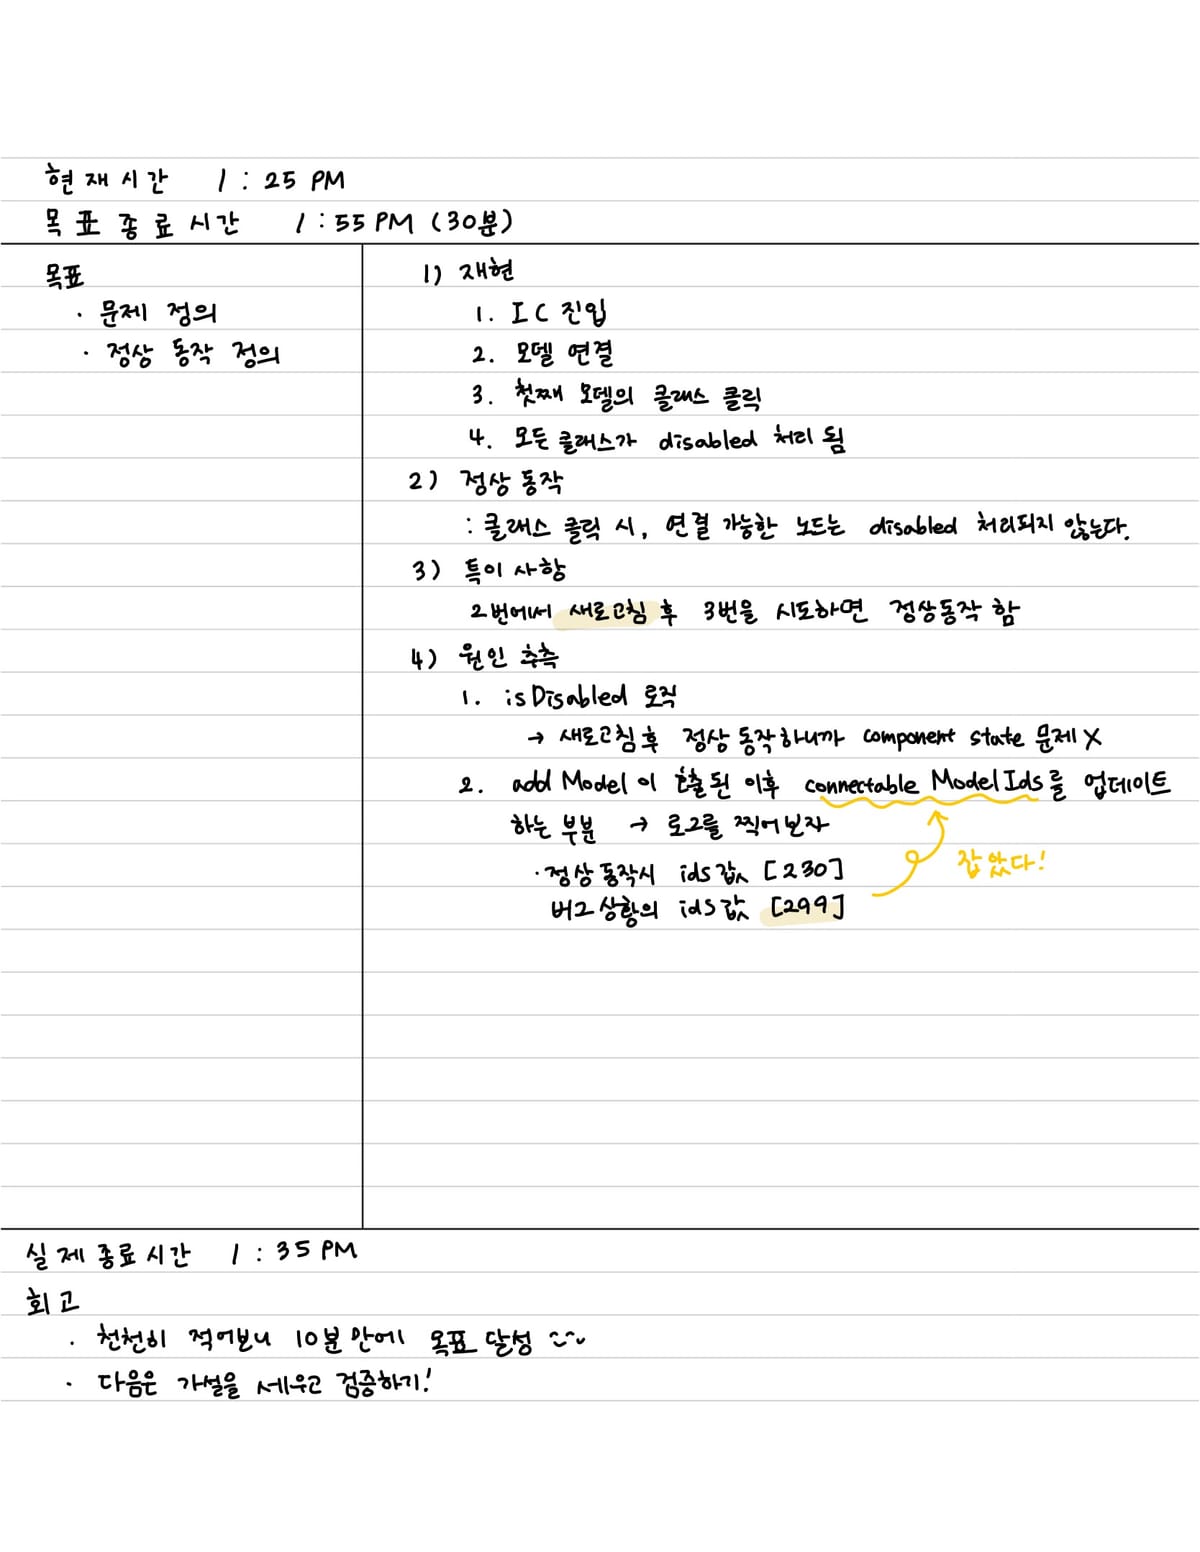 현재시간 1:25 PM
목표 종료시간 1:55 PM (30분)
목표
· 문제 정의
· 정상 동작 정의
1) 재현
1. IC 진입
2. 모델 연결
3. 첫째 모델의 클래스 클릭
4. 모든 클래스가 disabled 처리 됨
2) 정상 동작
: 클래스 클릭 시, 연결 가능한 노드는 disabled 처리되지 않는다.
3) 특이 사항
2번에서 새로고침 후 3번을 시도하면 정상동작 함
4) 원인 추측
1. isDisabled 로직
→ 새로고침 후 정상 동작하니까 component state 문제 X
2. add Model 이 호출된 이후 connectable Model Ids를 업데이트
하는 부분 → 로그를 찍어보자
· 정상 동작시 ids 값 [230]
버그 상황의 ids 값 [299]
잡았다!
실제 종료시간 1:35 PM
회고
· 천천히 적어보니 10분 안에 목표 달성
· 다음은 가설을 세우고 검증하기!